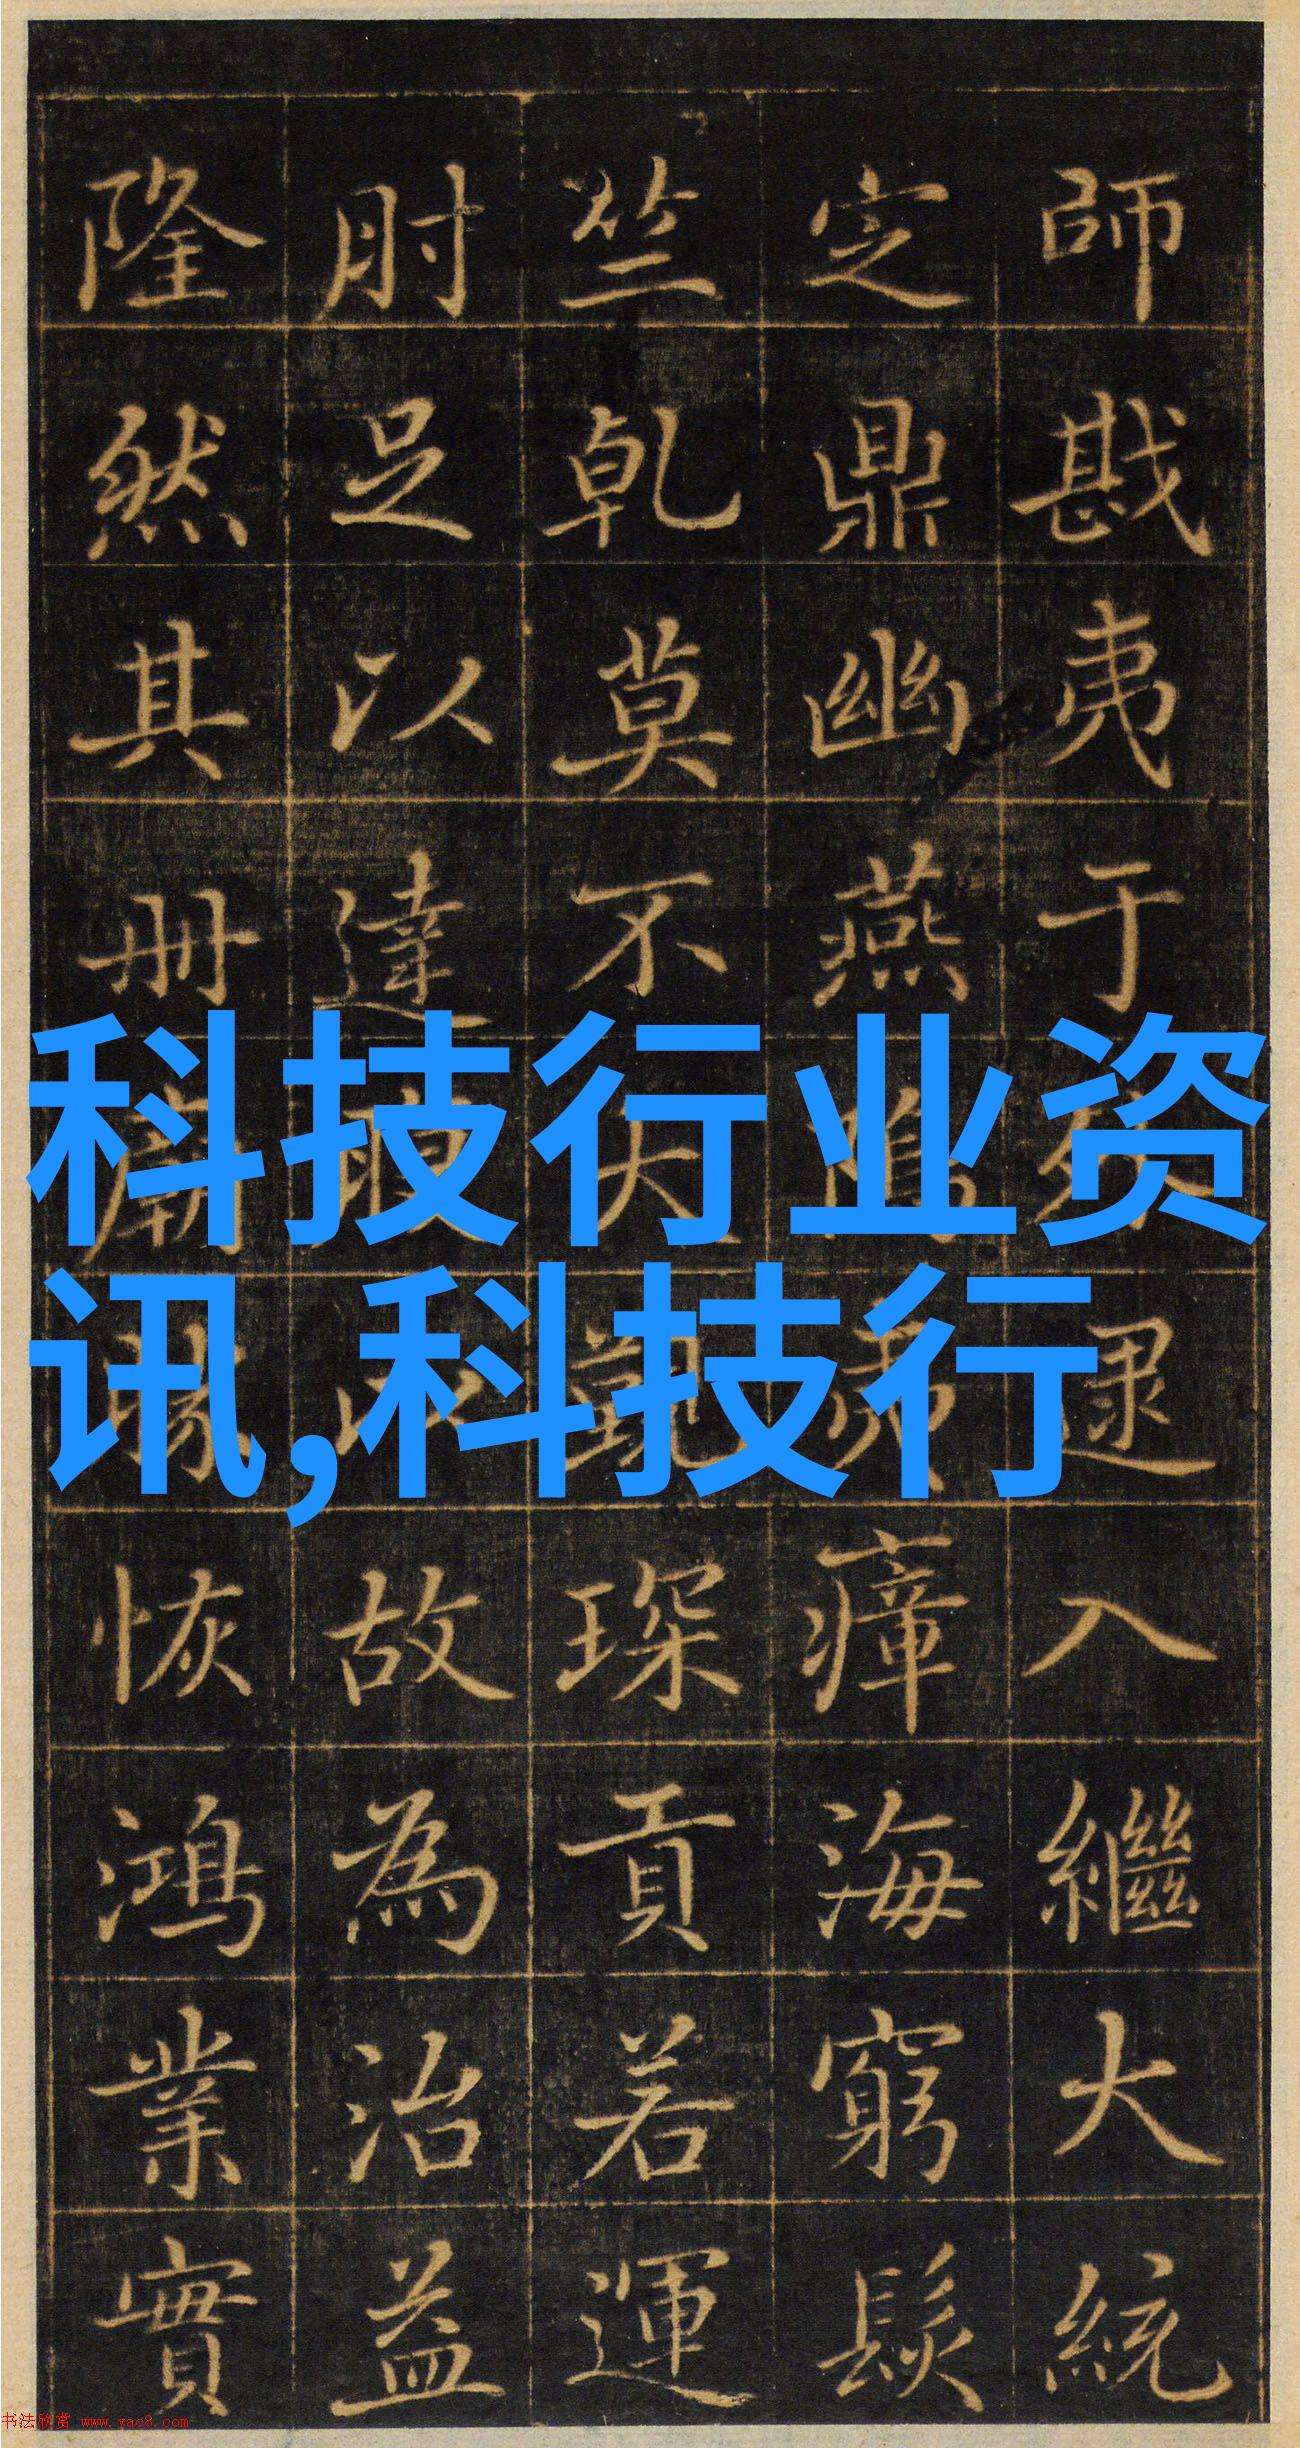 師戡夷于逮入繼大統
定鼎幽燕瘴海窮髮
竺乾莫不琛貢若運
肘足以達故為治益
隆然其册恢鴻業實
科技行业资
讯,科技行
书法欣赏 www.yac8.com